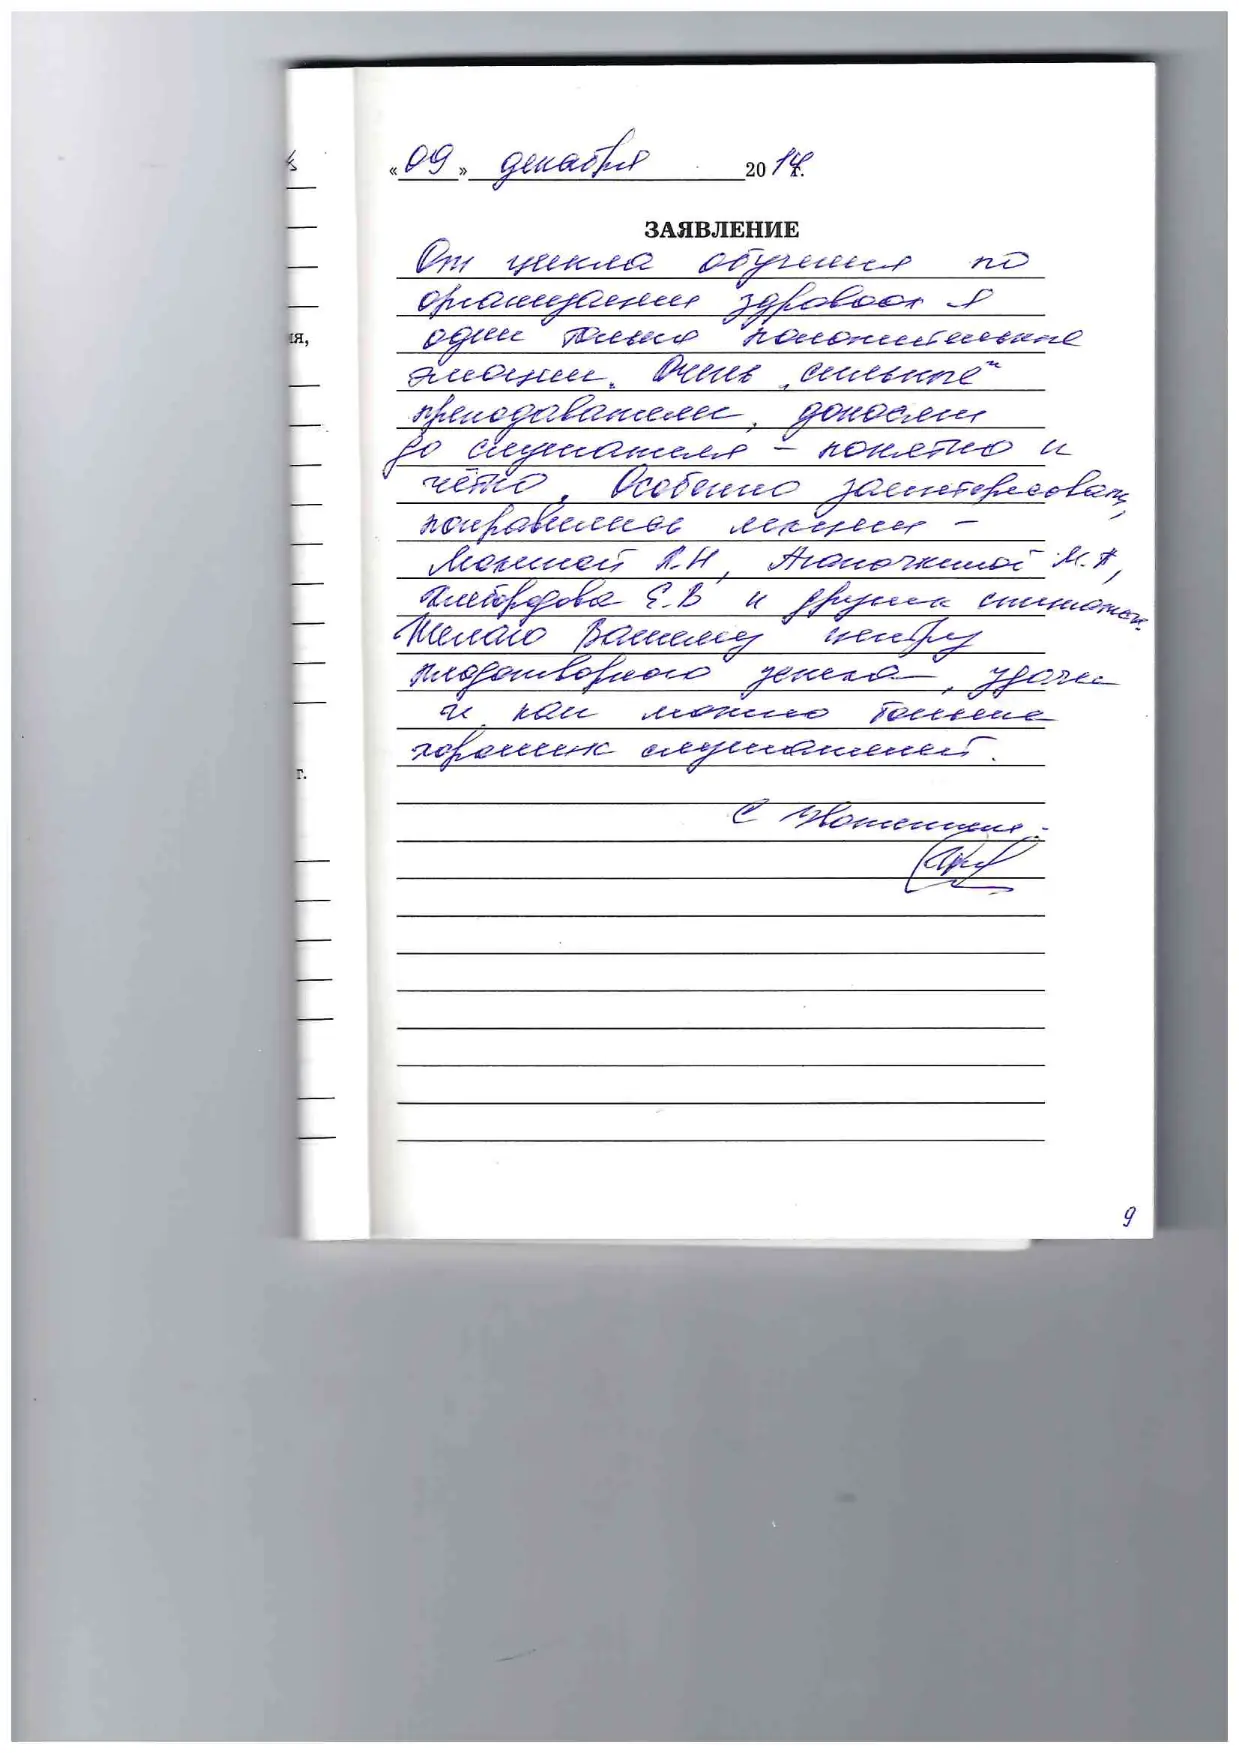 «09» декабря 2014г.
ЗАЯВЛЕНИЕ
От цикла обучения по
организации здравоох-я
один только положительные
эмоции. Очень „сильные"
преподаватели, доносят
до слушателя – понятно и
чётко. Особенно заинтересовали,
понравились лекции –
Мокиной Л.Н, Агапочкиной М.А,
Е.В и других
Желаю Вашему центру
плодотворного успеха, удачи
и как можно больше
хороших слушателей.
С Уважением:
9
ия,
г.